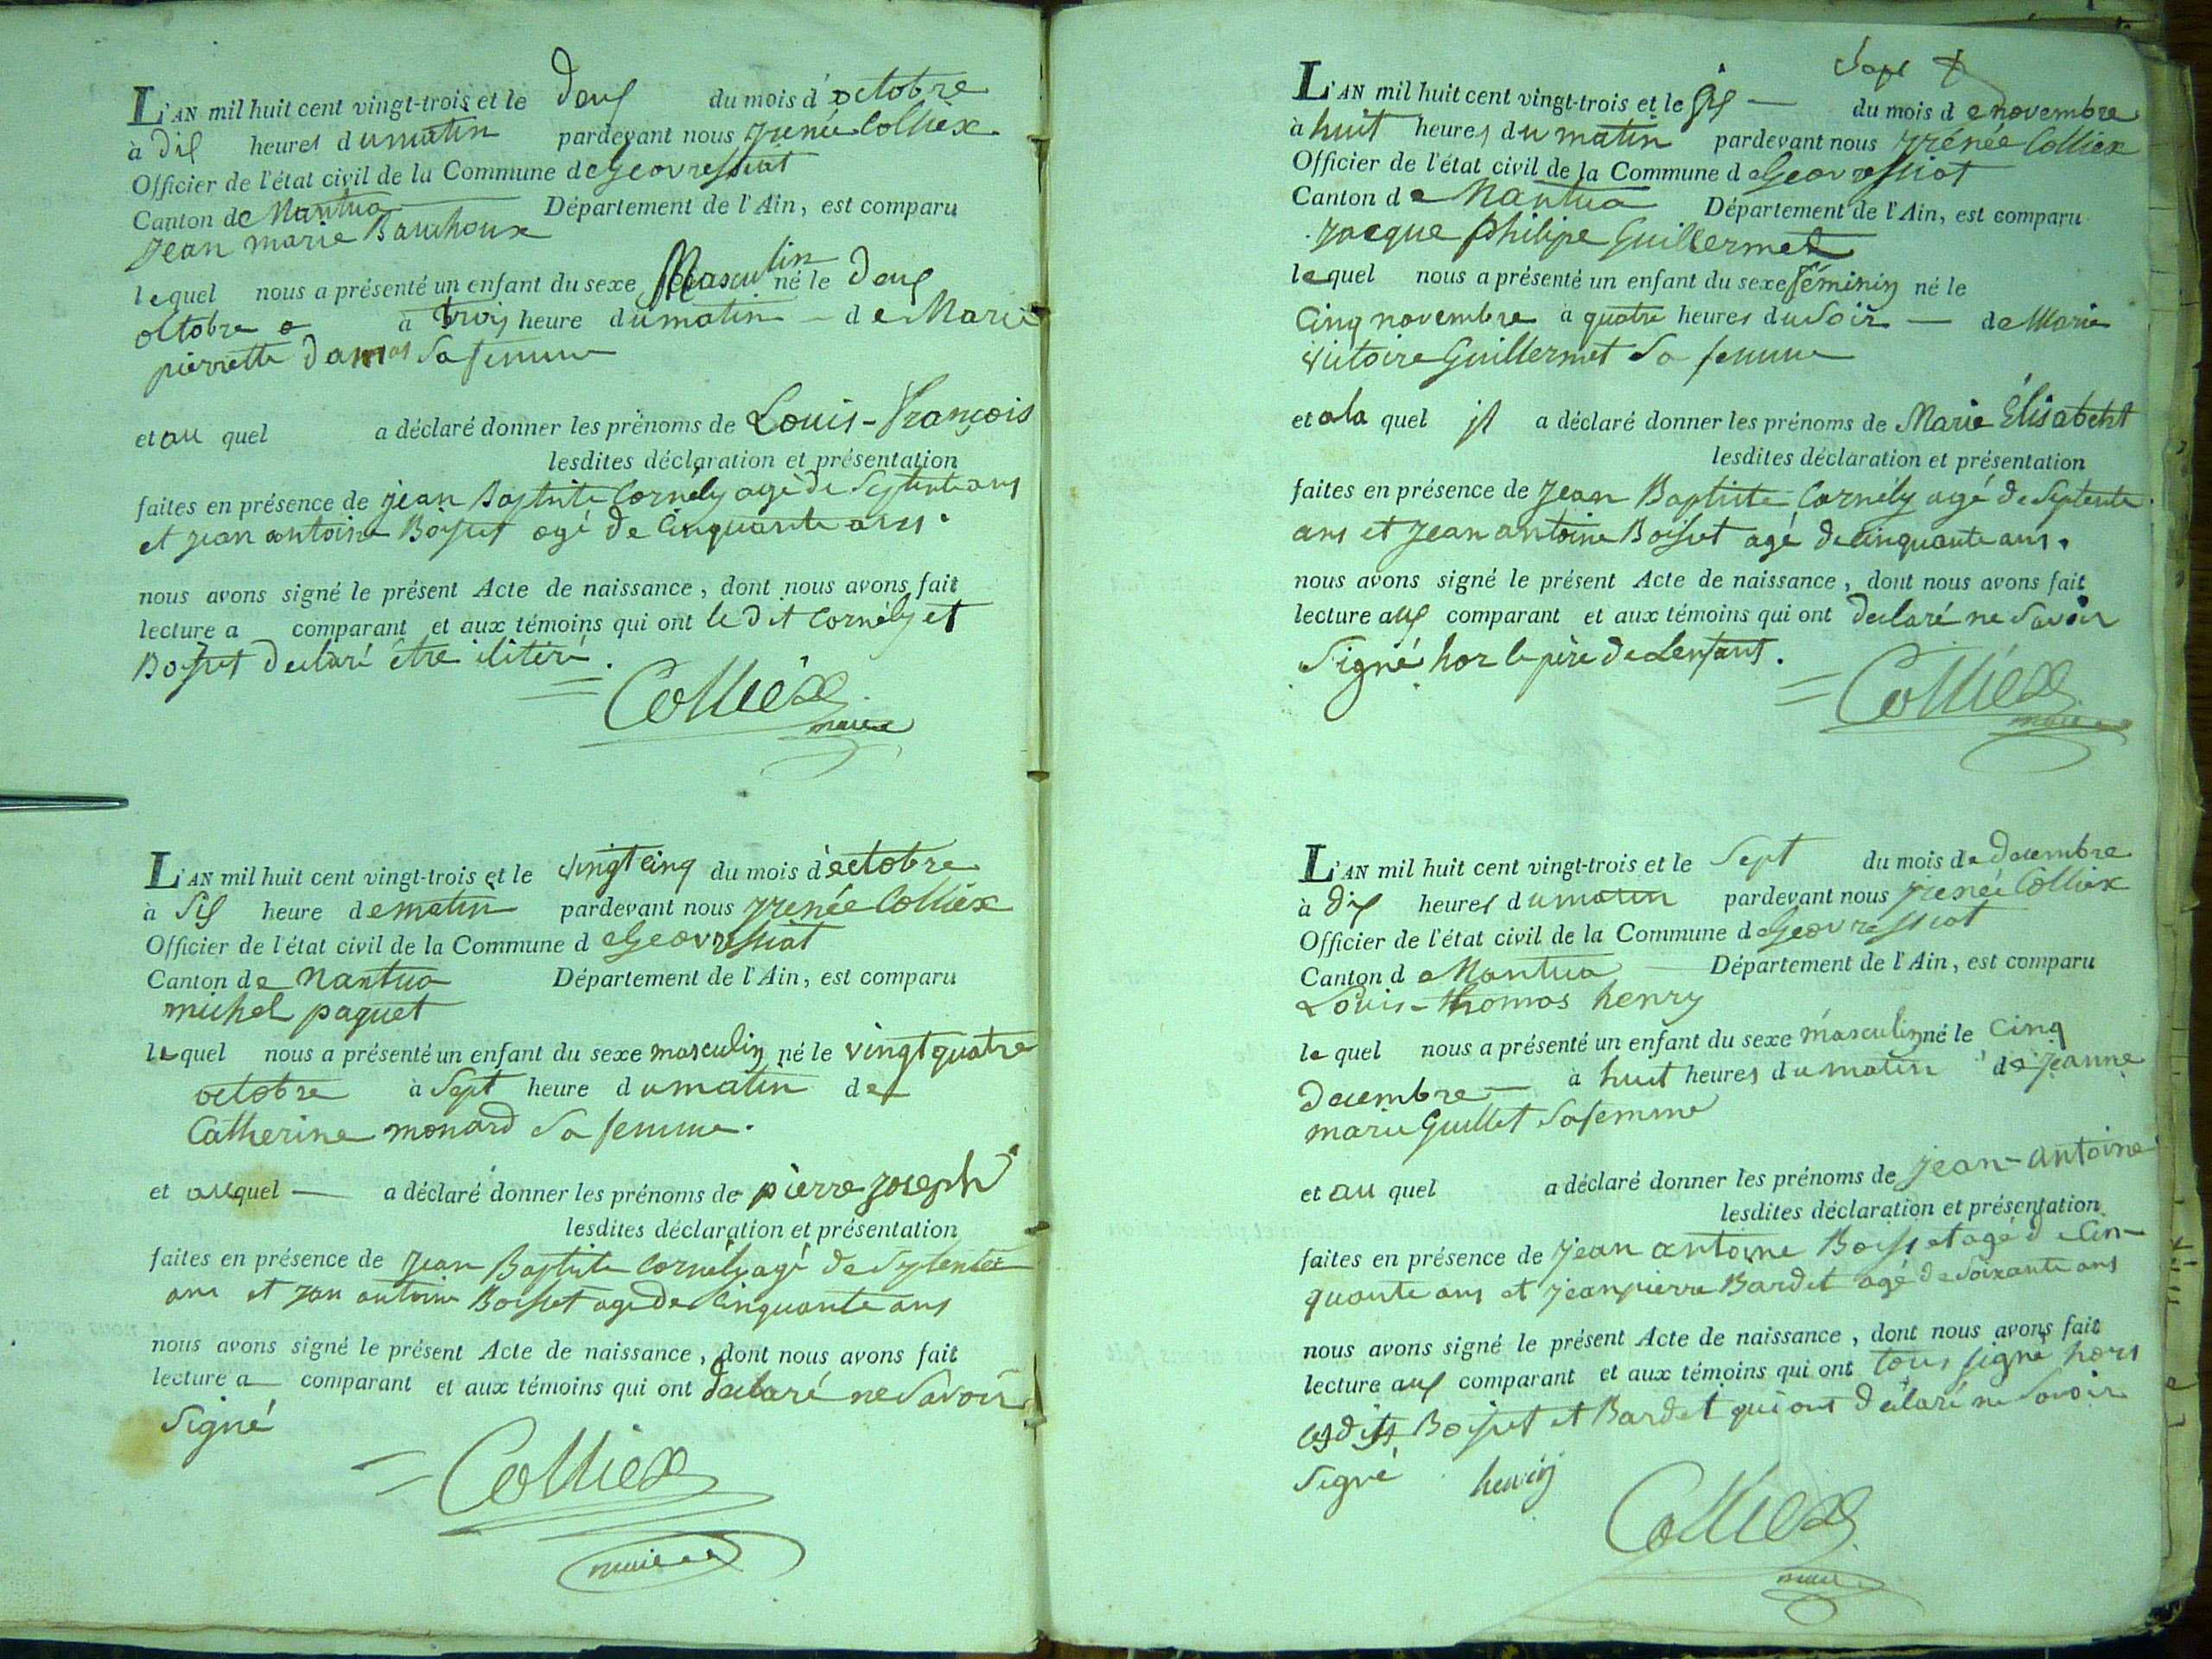 L'AN mil huit cent vingt-trois et le deux du mois d'octobre
à dix heures du matin pardevant nous yrenée Colliex
Officier de l'état civil de la Commune de Geovressiat
Canton de Nantua Département de l'Ain, est comparu
Jean marie Bauchoux
lequel nous a présenté un enfant du sexe Masculin né le deux
octobre à trois heure du matin de Marie
pierrette damas sa femme
et au quel a déclaré donner les prénoms de Louis-François
lesdites déclaration et présentation
faites en présence de jean Baptiste Cornély agé de septente ans
et jean antoine Boisset agé de Cinquante ans.
nous avons signé le présent Acte de naissance, dont nous avons fait
lecture a comparant et aux témoins qui ont le dit Cornély et
Boisset declaré être ilitéré.
Colliex
maire
L'AN mil huit cent vingt-trois et le vingt cinq du mois d'octobre
à six heure de matin pardevant nous yrenée Colliex
Officier de l'état civil de la Commune de Geovressiat
Canton de Nantua Département de l'Ain, est comparu
michel paquet
lequel nous a présenté un enfant du sexe masculin né le vingt quatre
octobre à sept heure du matin de
Catherine monard sa femme.
et auquel a déclaré donner les prénoms de pierre joseph
lesdites déclaration et présentation
faites en présence de jean Baptiste Cornély agé de septente
ans et jean antoine Boisset agé de Cinquante ans
nous avons signé le présent Acte de naissance, dont nous avons fait
lecture a comparant et aux témoins qui ont declaré ne savoir
signé
Colliex
maire
sept
L'AN mil huit cent vingt-trois et le six du mois de novembre
à huit heures du matin pardevant nous yrénée Colliex
Officier de l'état civil de la Commune de Geovressiat
Canton de Nantua Département de l'Ain, est comparu
Jacque philipe Guillermet
lequel nous a présenté un enfant du sexe féminin né le
Cinq novembre à quatre heures du soir de Marie
victoire Guillermet sa femme
et a la quel il a déclaré donner les prénoms de Marie Élisabeht
lesdites déclaration et présentation
faites en présence de Jean Baptiste Cornély agé de septente
ans et Jean antoine Boisset agé de cinquante ans.
nous avons signé le présent Acte de naissance, dont nous avons fait
lecture aux comparant et aux témoins qui ont declaré ne savoir
signé hor le père de Lenfant.
Colliex
maire
L'AN mil huit cent vingt-trois et le sept du mois de decembre
à dix heures du matin pardevant nous yrenée Colliex
Officier de l'état civil de la Commune de Geovressiat
Canton de Nantua Département de l'Ain, est comparu
Louis-thomas henry
le quel nous a présenté un enfant du sexe masculin né le cinq
decembre à huit heures du matin de jeanne
marie Guillet sa femme
et au quel a déclaré donner les prénoms de jean-antoine
lesdites déclaration et présentation
faites en présence de jean antoine Boisset agé de Cin-
quante ans et jean pierre Bardet agé de soixante ans
nous avons signé le présent Acte de naissance, dont nous avons fait
lecture aux comparant et aux témoins qui ont tous signé hors
lesdits Boisset et Bardet qui ont déclaré ne savoir
signé henry
Colliex
maire